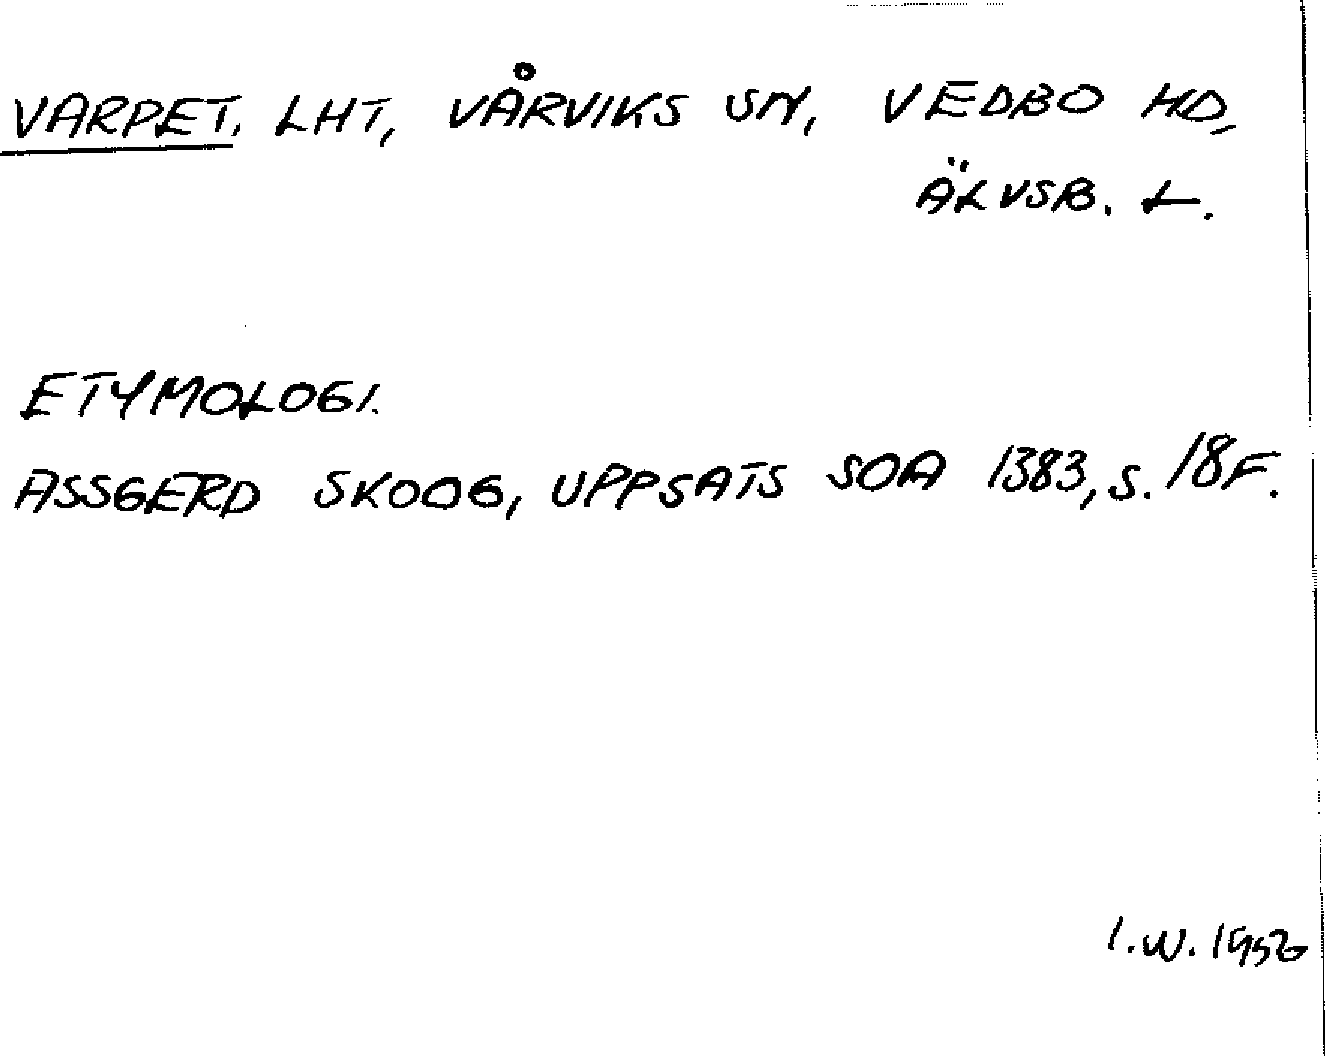 VARPET, LHT, VÅRVIKS SN, VEDBO HD,
ÄLVSB. L.
ETYMOLOGI.
ASSGERD SKOOG, UPPSATS SOA 1383, S. 18F.
I.W. 1956